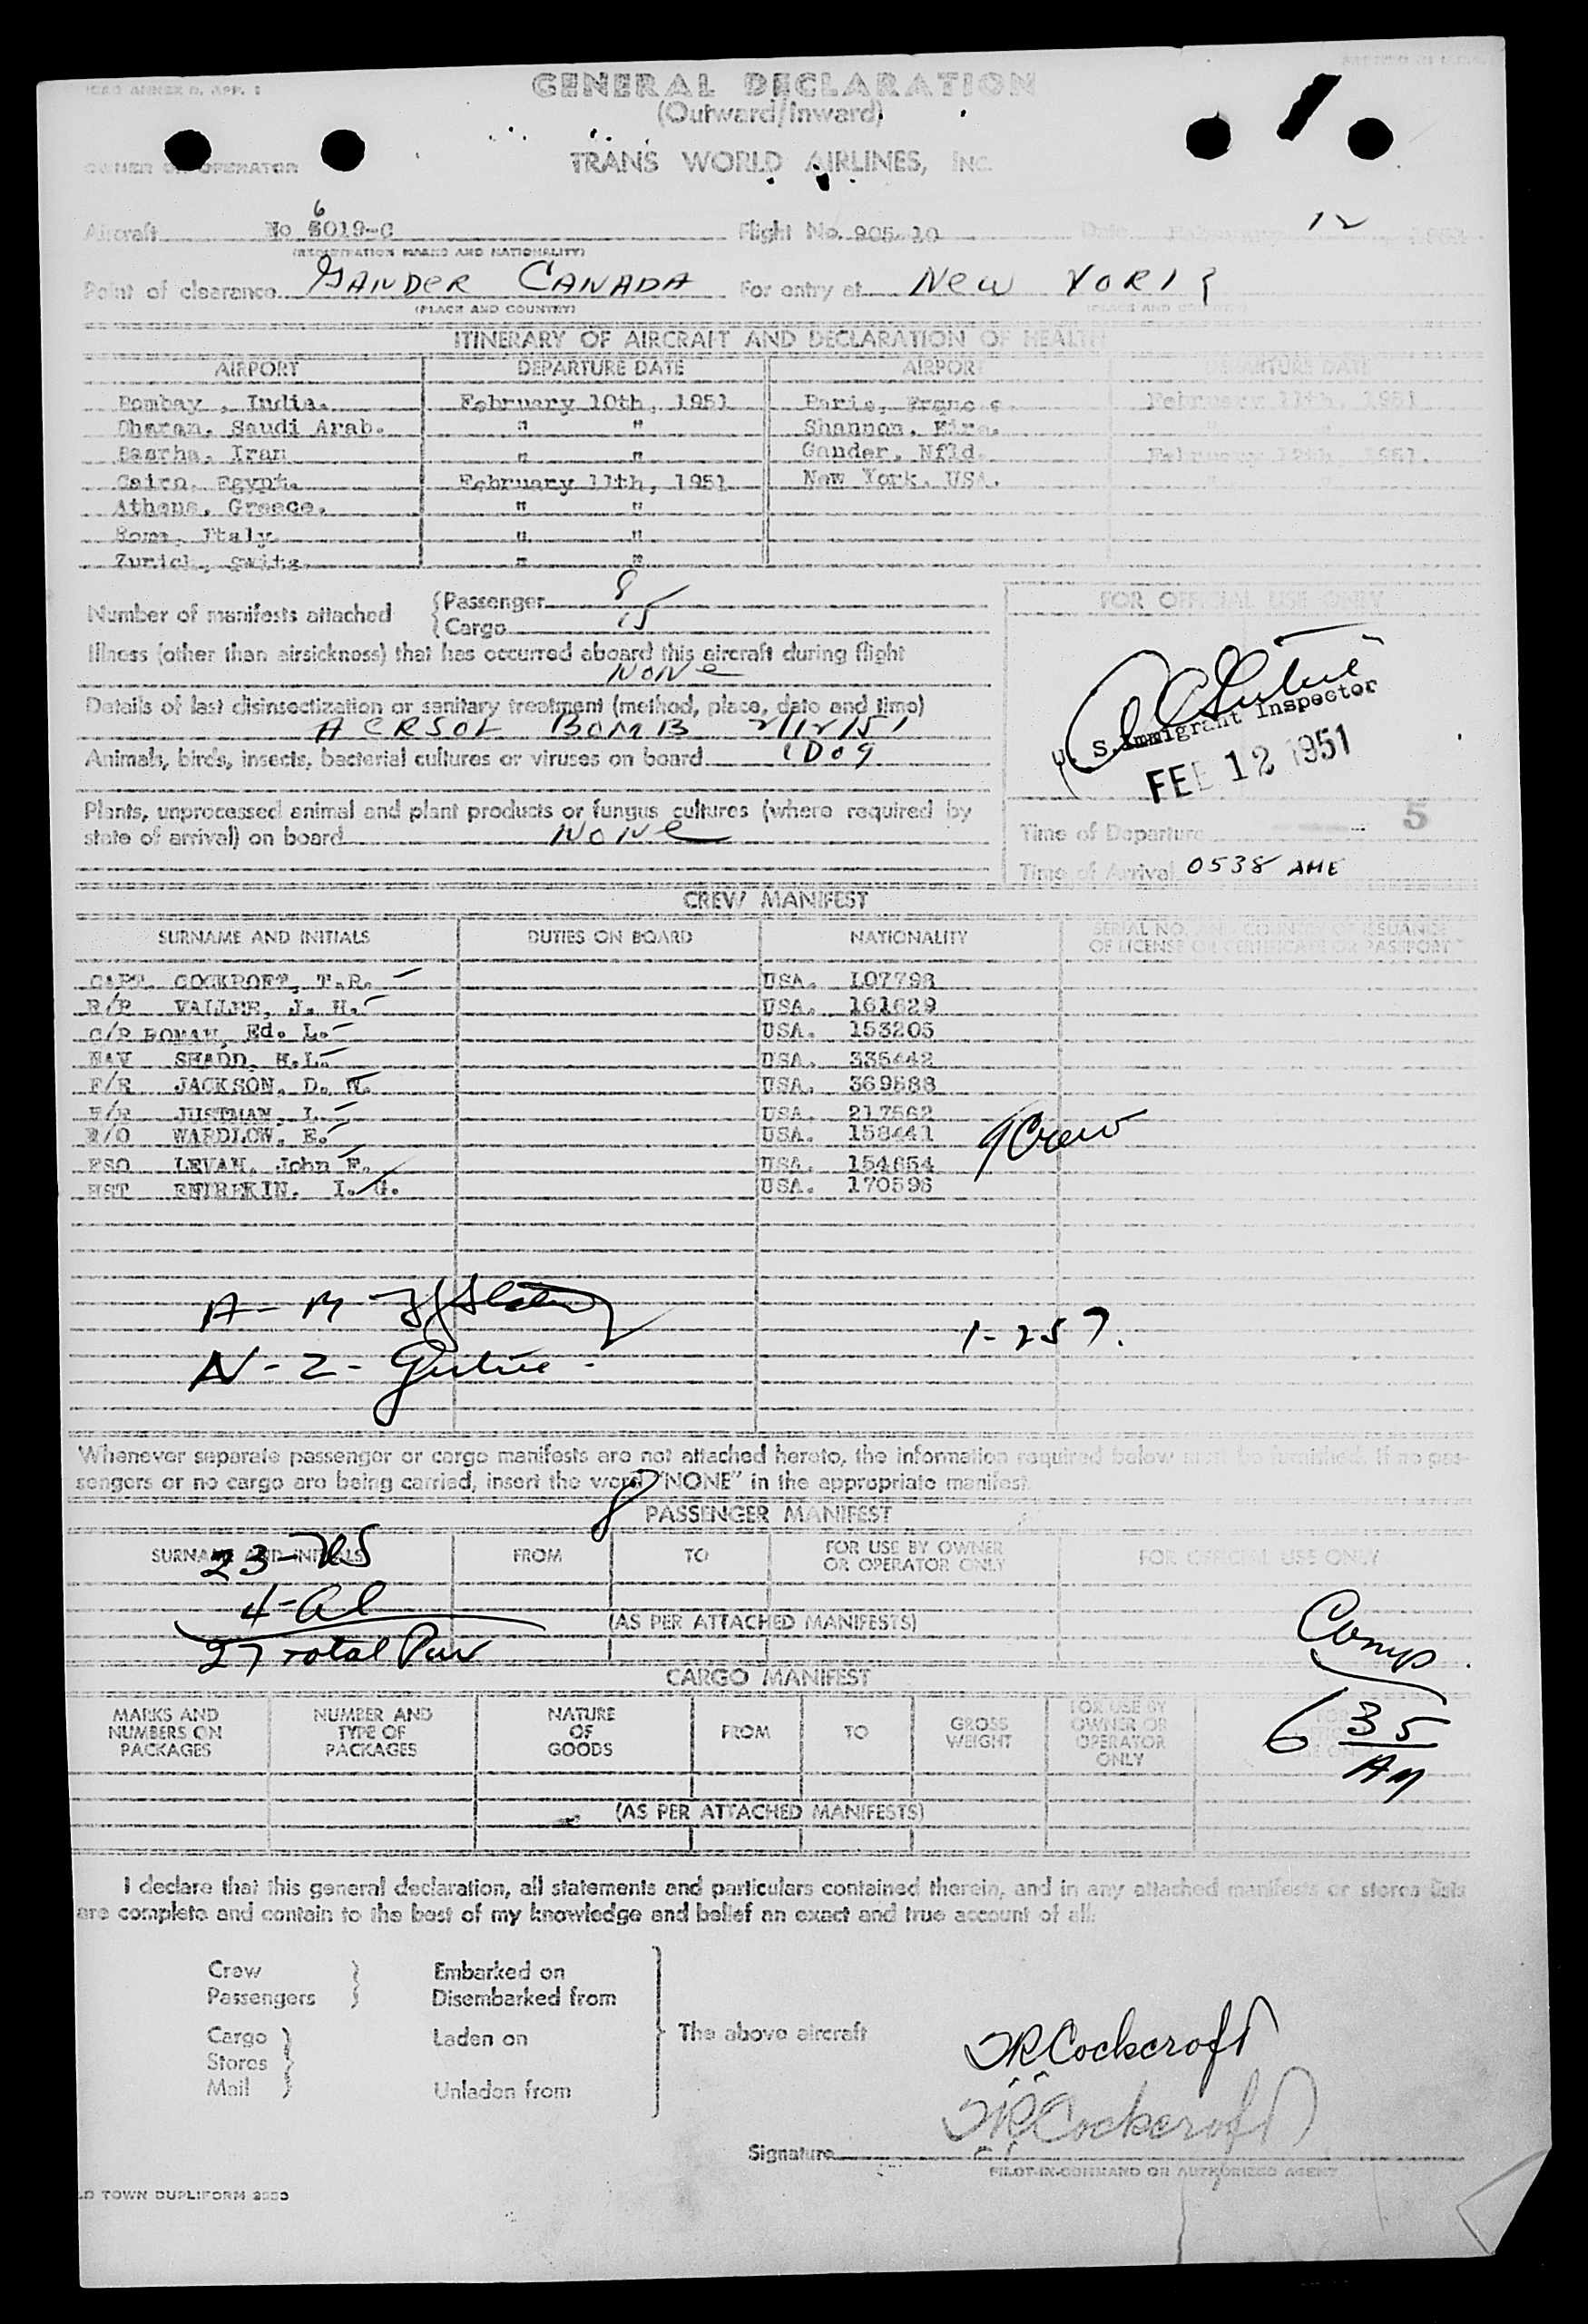 ICAO ANNEX 9, APP. 1
GENERAL DECLARATION
(Outward/Inward)
OWNER OR OPERATOR
TRANS WORLD AIRLINES, INC.
Aircraft No 6019-C Flight No. 905-10 Date February 12, 1951
(REGISTRATION MARKS AND NATIONALITY)
Point of clearance GANDER CANADA For entry at NEW YORK
(PLACE AND COUNTRY) (PLACE AND COUNTRY)
ITINERARY OF AIRCRAFT AND DECLARATION OF HEALTH
AIRPORT DEPARTURE DATE AIRPORT DEPARTURE DATE
Bombay , India. February 10th, 1951 Paris, France. February 11th, 1951
Dharan, Saudi Arab. " " Shannon, Eire. " "
Basrha, Iran " " Gander, Nfld. February 12th 1951.
Cairo, Egypt. February 11th, 1951 New York, USA. "
Athens, Greece. " "
Rome, Italy " "
Zurich, Switz. " "
Number of manifests attached { Passenger 8
{ Cargo 15
FOR OFFICIAL USE ONLY
Illness (other than airsickness) that has occurred aboard this aircraft during flight
NONE
Details of last disinsectization or sanitary treatment (method, place, date and time)
AERSOL BOMB 2/12/51
Animals, birds, insects, bacterial cultures or viruses on board 1 Dog
U. S. Immigrant Inspector
FEB 12 1951
Plants, unprocessed animal and plant products or fungus cultures (where required by
state of arrival) on board NONE
Time of Departure 5
Time of Arrival 0538 AME
CREW MANIFEST
SURNAME AND INITIALS DUTIES ON BOARD NATIONALITY SERIAL NO. AND COUNTRY OF ISSUANCE
OF LICENSE OR CERTIFICATE OR PASSPORT
CAPT. COCKROFT, T.R. USA. 107798
VALLEE, J. H. USA. 161629
BOMAN, Ed. L. USA. 153205
NAV SHADD, H.L. USA. 335442
F/E JACKSON, D. W. USA. 369588
JUSTMAN, I. USA. 217562
R/O WARDLOW, E. USA. 158441
9 Crew
PSO LEVAN, John E. USA. 154654
HST ENIREKIN. I. G. USA. 170596
A - M
1-257.
N - Z -
Whenever separate passenger or cargo manifests are not attached hereto, the information required below must be furnished. If no pas-
sengers or no cargo are being carried, insert the word "NONE" in the appropriate manifest.
8
PASSENGER MANIFEST
SURNAME AND INITIALS FROM TO FOR USE BY OWNER
OR OPERATOR ONLY FOR OFFICIAL USE ONLY
23 - US
4 - Al
(AS PER ATTACHED MANIFESTS)
27 Total Pax
Comp
CARGO MANIFEST
MARKS AND
NUMBERS ON
PACKAGES NUMBER AND
TYPE OF
PACKAGES NATURE
OF
GOODS FROM TO GROSS
WEIGHT FOR USE BY
OWNER OR
OPERATOR
ONLY
6 35
AM
(AS PER ATTACHED MANIFESTS)
I declare that this general declaration, all statements and particulars contained therein, and in any attached manifests or stores lists
are complete and contain to the best of my knowledge and belief an exact and true account of all:
Crew } Embarked on
Passengers } Disembarked from
Cargo } Laden on
The above aircraft
Stores }
Mail } Unladen from
TR Cockcroft
TR Cockcroft
Signature
PILOT-IN-COMMAND OR AUTHORIZED AGENT
D TOWN DUPLIFORM